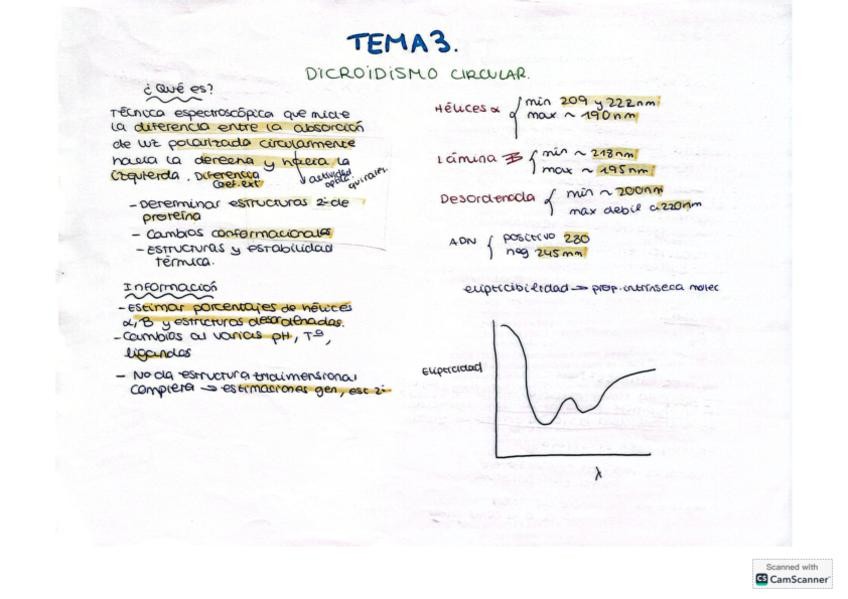 TEMA 3.
DICROIDISMO CIRCULAR.
¿Qué es?
Técnica espectroscópica que mide
la diferencia entre la absorción
de luz polarizada circularmente
hacia la derecha y hacia la
izquierda. Diferencia
coef. ext
actividad
óptica
quirales.
- Determinar estructuras 2ª de
proteína
- Cambios conformacionales
- Estructuras y estabilidad
térmica.
Información
- Estimar porcentajes de hélices
α, B y estructuras desordenadas.
- Cambios al variar pH, Tª,
ligandos
- No da estructura tridimensional
completa → estimaciones gen, est 2ª
Hélices α
min 209 y 222nm
max ~ 190nm
Lámina B
min ~ 218nm
max ~ 195nm
Desordenada
min ~ 200nm
max debil a 220nm
ADN
positivo 280
neg 245nm
elipticibilidad → prop. intrínseca molec
Elipticidad
λ
Scanned with
CS CamScanner